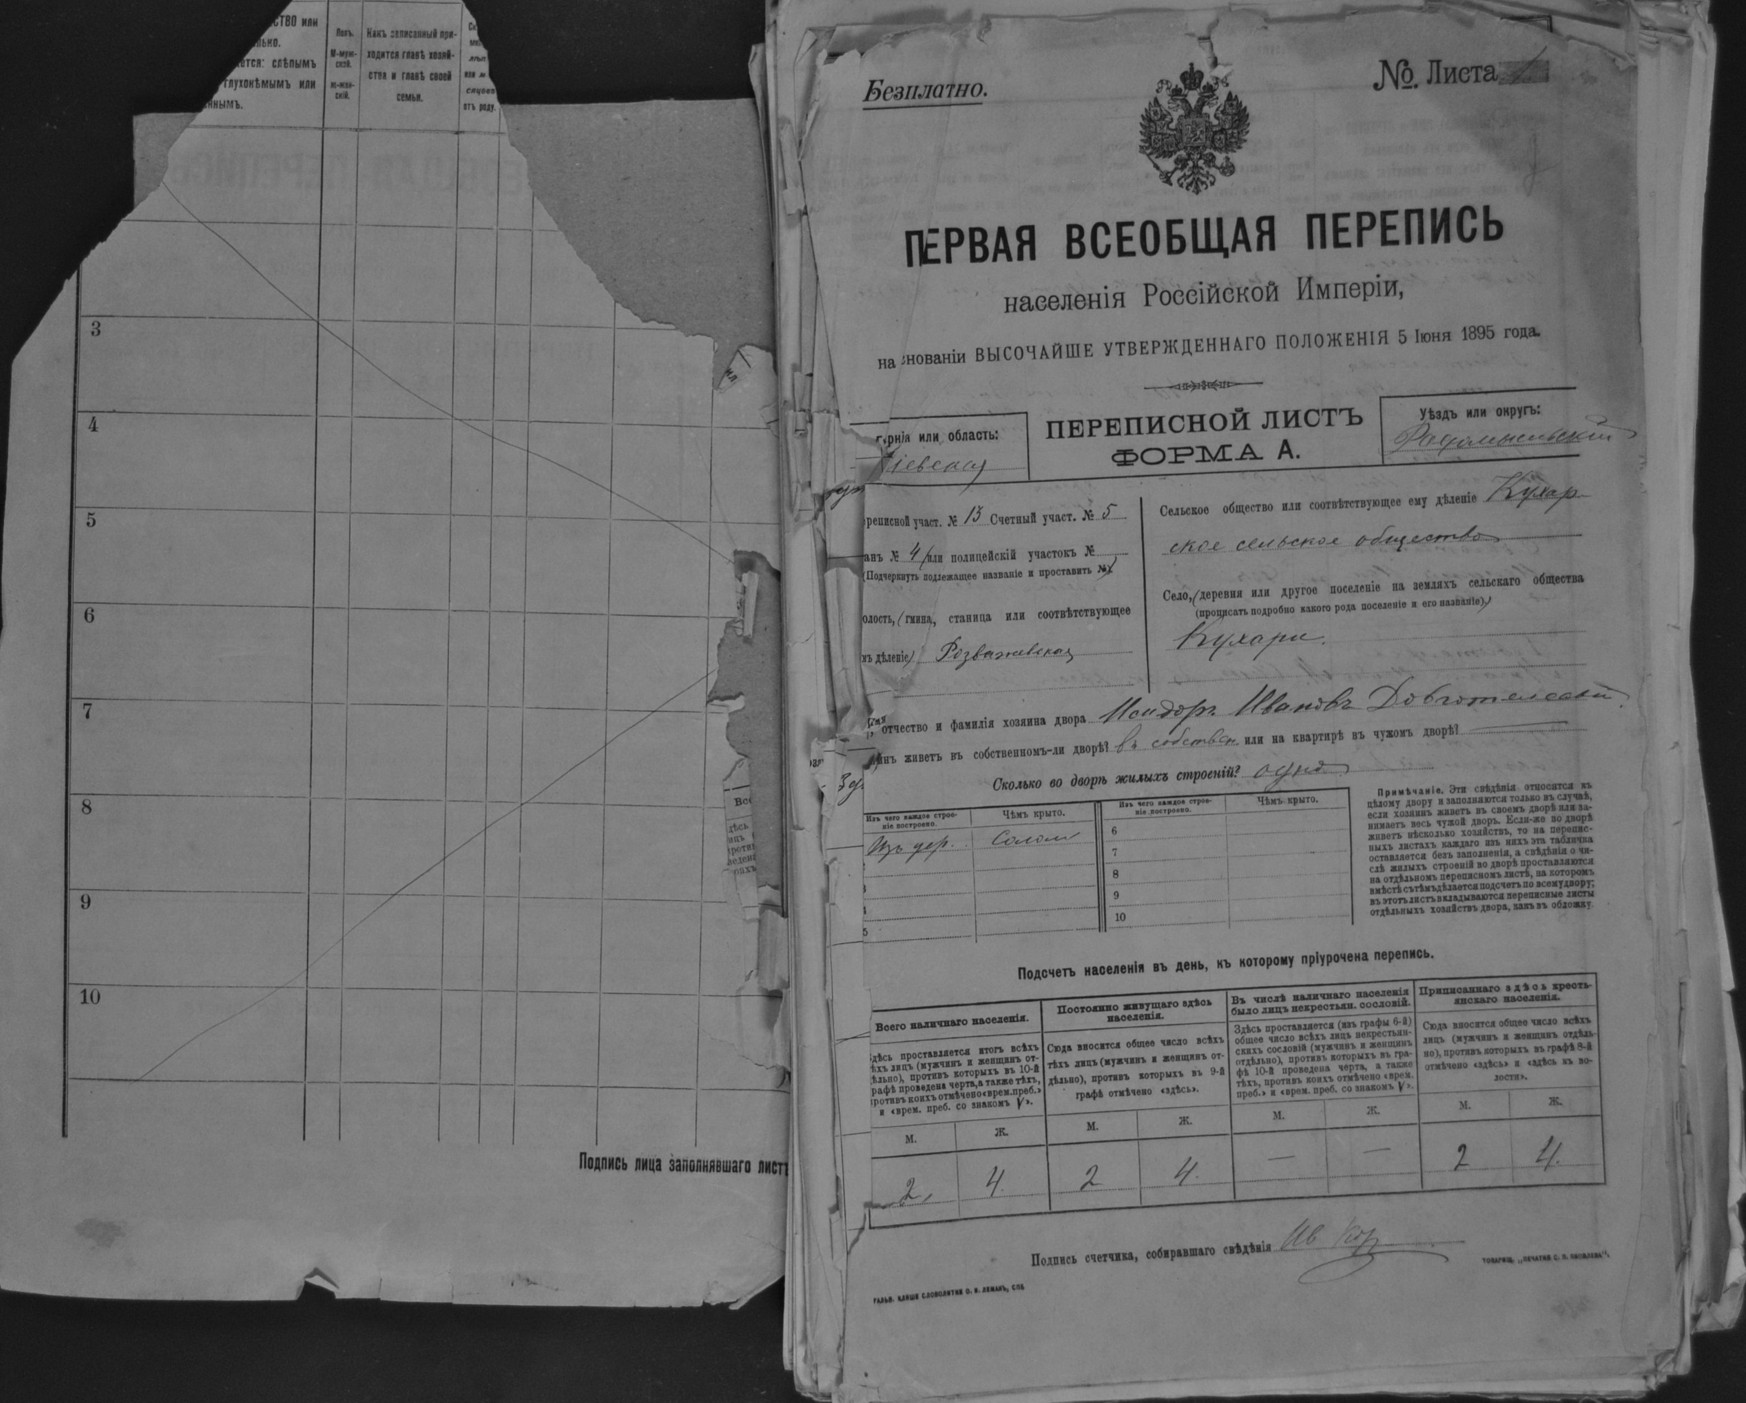 СТВО или
ется: слѣпымъ
глухонѣмымъ или
ннымъ.
Полъ.
М-муж-
ской.
ж-жен-
скій.
Какъ записанный при-
ходится главѣ хозяй-
ства и главѣ своей
семьи.
3
4
5
6
7
8
9
10
Подпись лица заполнявшаго лист
Безплатно.
№. Листа
ПЕРВАЯ ВСЕОБЩАЯ ПЕРЕПИСЬ
населенія Россійской Имперіи,
на основаніи ВЫСОЧАЙШЕ УТВЕРЖДЕННАГО ПОЛОЖЕНІЯ 5 Іюня 1895 года.
ПЕРЕПИСНОЙ ЛИСТЪ
ФОРМА А.
рнія или область:
іевская
Уѣздъ или округъ:
Радомысльскій
реписной участ. № 13 Счетный участ. № 5
анъ № 4 (или полицейскій участокъ №
(Подчеркнуть подлежащее названіе и проставить №)
олость, (гмина, станица или соотвѣтствующее
въ дѣленіе) Розважевская
Сельское общество или соотвѣтствующее ему дѣленіе Кухар-
ское сельское общество
Село, (деревня или другое поселеніе на земляхъ сельскаго общества
(прописать подробно какого рода поселеніе и его названіе)
Кухари.
отчество и фамилія хозяина двора Исидоръ Ивановъ
инъ живетъ въ собственномъ-ли дворѣ? въ собствен. или на квартирѣ въ чужомъ дворѣ?
Сколько во дворѣ жилыхъ строеній? одно
Изъ чего каждое строе-
ніе построено.
Чѣмъ крыто.
Изъ дер. Солом
5
Изъ чего каждое строе-
ніе построено.
Чѣмъ крыто.
6
7
8
9
10
Примѣчаніе. Эти свѣдѣнія относятся къ
цѣлому двору и заполняются только въ случаѣ,
если хозяинъ живетъ въ своемъ дворѣ или за-
нимаетъ весь чужой дворъ. Если-же во дворѣ
живетъ нѣсколько хозяйствъ, то на перепис-
ныхъ листахъ каждаго изъ нихъ эта табличка
оставляется безъ заполненія, а свѣдѣнія о чи-
слѣ жилыхъ строеній во дворѣ проставляются
на отдѣльномъ переписномъ листѣ, на которомъ
вмѣстѣ съ тѣмъ дѣлается подсчетъ по всему двору;
въ этотъ листъ вкладываются переписные листы
отдѣльныхъ хозяйствъ двора, какъ въ обложку.
Подсчетъ населенія въ день, къ которому пріурочена перепись.
Всего наличнаго населенія.
дѣсь проставляется итогъ всѣхъ
ѣхъ лицъ (мужчинъ и женщинъ от-
дѣльно), противъ которыхъ въ 10-й
рафѣ проведена черта, а также тѣхъ,
ротивъ коихъ отмѣчено «врем. преб.»
и «врем. преб. со знакомъ V».
М. Ж.
2 4.
Постоянно живущаго здѣсь
населенія.
Сюда вносится общее число всѣхъ
тѣхъ лицъ (мужчинъ и женщинъ от-
дѣльно), противъ которыхъ въ 9-й
графѣ отмѣчено «здѣсь».
М. Ж.
2 4.
Въ числѣ наличнаго населенія
было лицъ некрестьян. сословій.
Здѣсь проставляется (изъ графы 6-й)
общее число всѣхъ лицъ некрестьян-
скихъ сословій (мужчинъ и женщинъ
отдѣльно), противъ которыхъ въ гра-
фѣ 10-й проведена черта, а также
тѣхъ, противъ коихъ отмѣчено «врем.
преб.» и «врем. преб. со знакомъ V».
М. Ж.
— —
Приписаннаго здѣсь кресть-
янскаго населенія.
Сюда вносится общее число всѣхъ
лицъ (мужчинъ и женщинъ отдѣль-
но), противъ которыхъ въ графѣ 8-й
отмѣчено «здѣсь» и «здѣсь въ во-
лости».
М. Ж.
2 4.
Подпись счетчика, собиравшаго свѣдѣнія
ГАЛЬВ. КЛИШЕ СЛОВОЛИТНИ О. И. ЛЕМАНЪ, СПБ.
ТОВАРИЩ. „ПЕЧАТНЯ С. П. ЯКОВЛЕВА“.